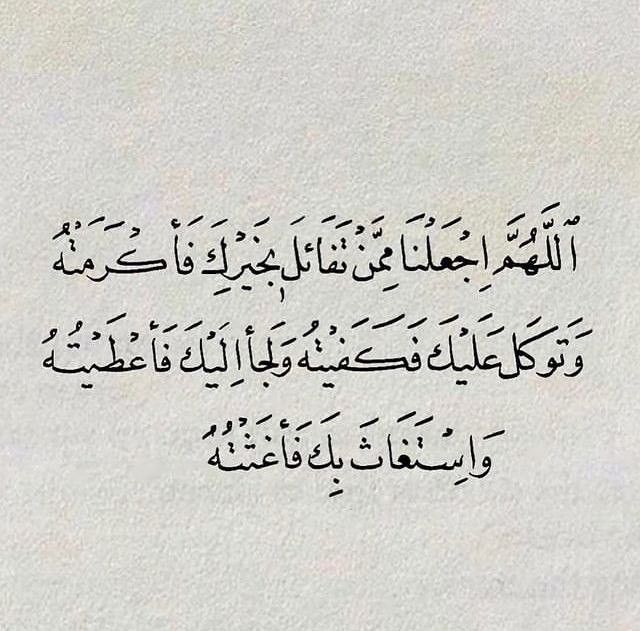 ٱللَّهُمَّ اِجْعَلْنَا مِمَّنْ تَفَائَلَ بِخَيْرِكَ فَأَكْرَمَتْهُ
وَتَوَكَلَ عَلَيْكَ فَكَفَيْتْهُ وَلَجأ اِلَيْكَ فَأعْطَيْتُهُ
وَاِسْتَغَاثَ بِكَ فَأغَثْتُهُ